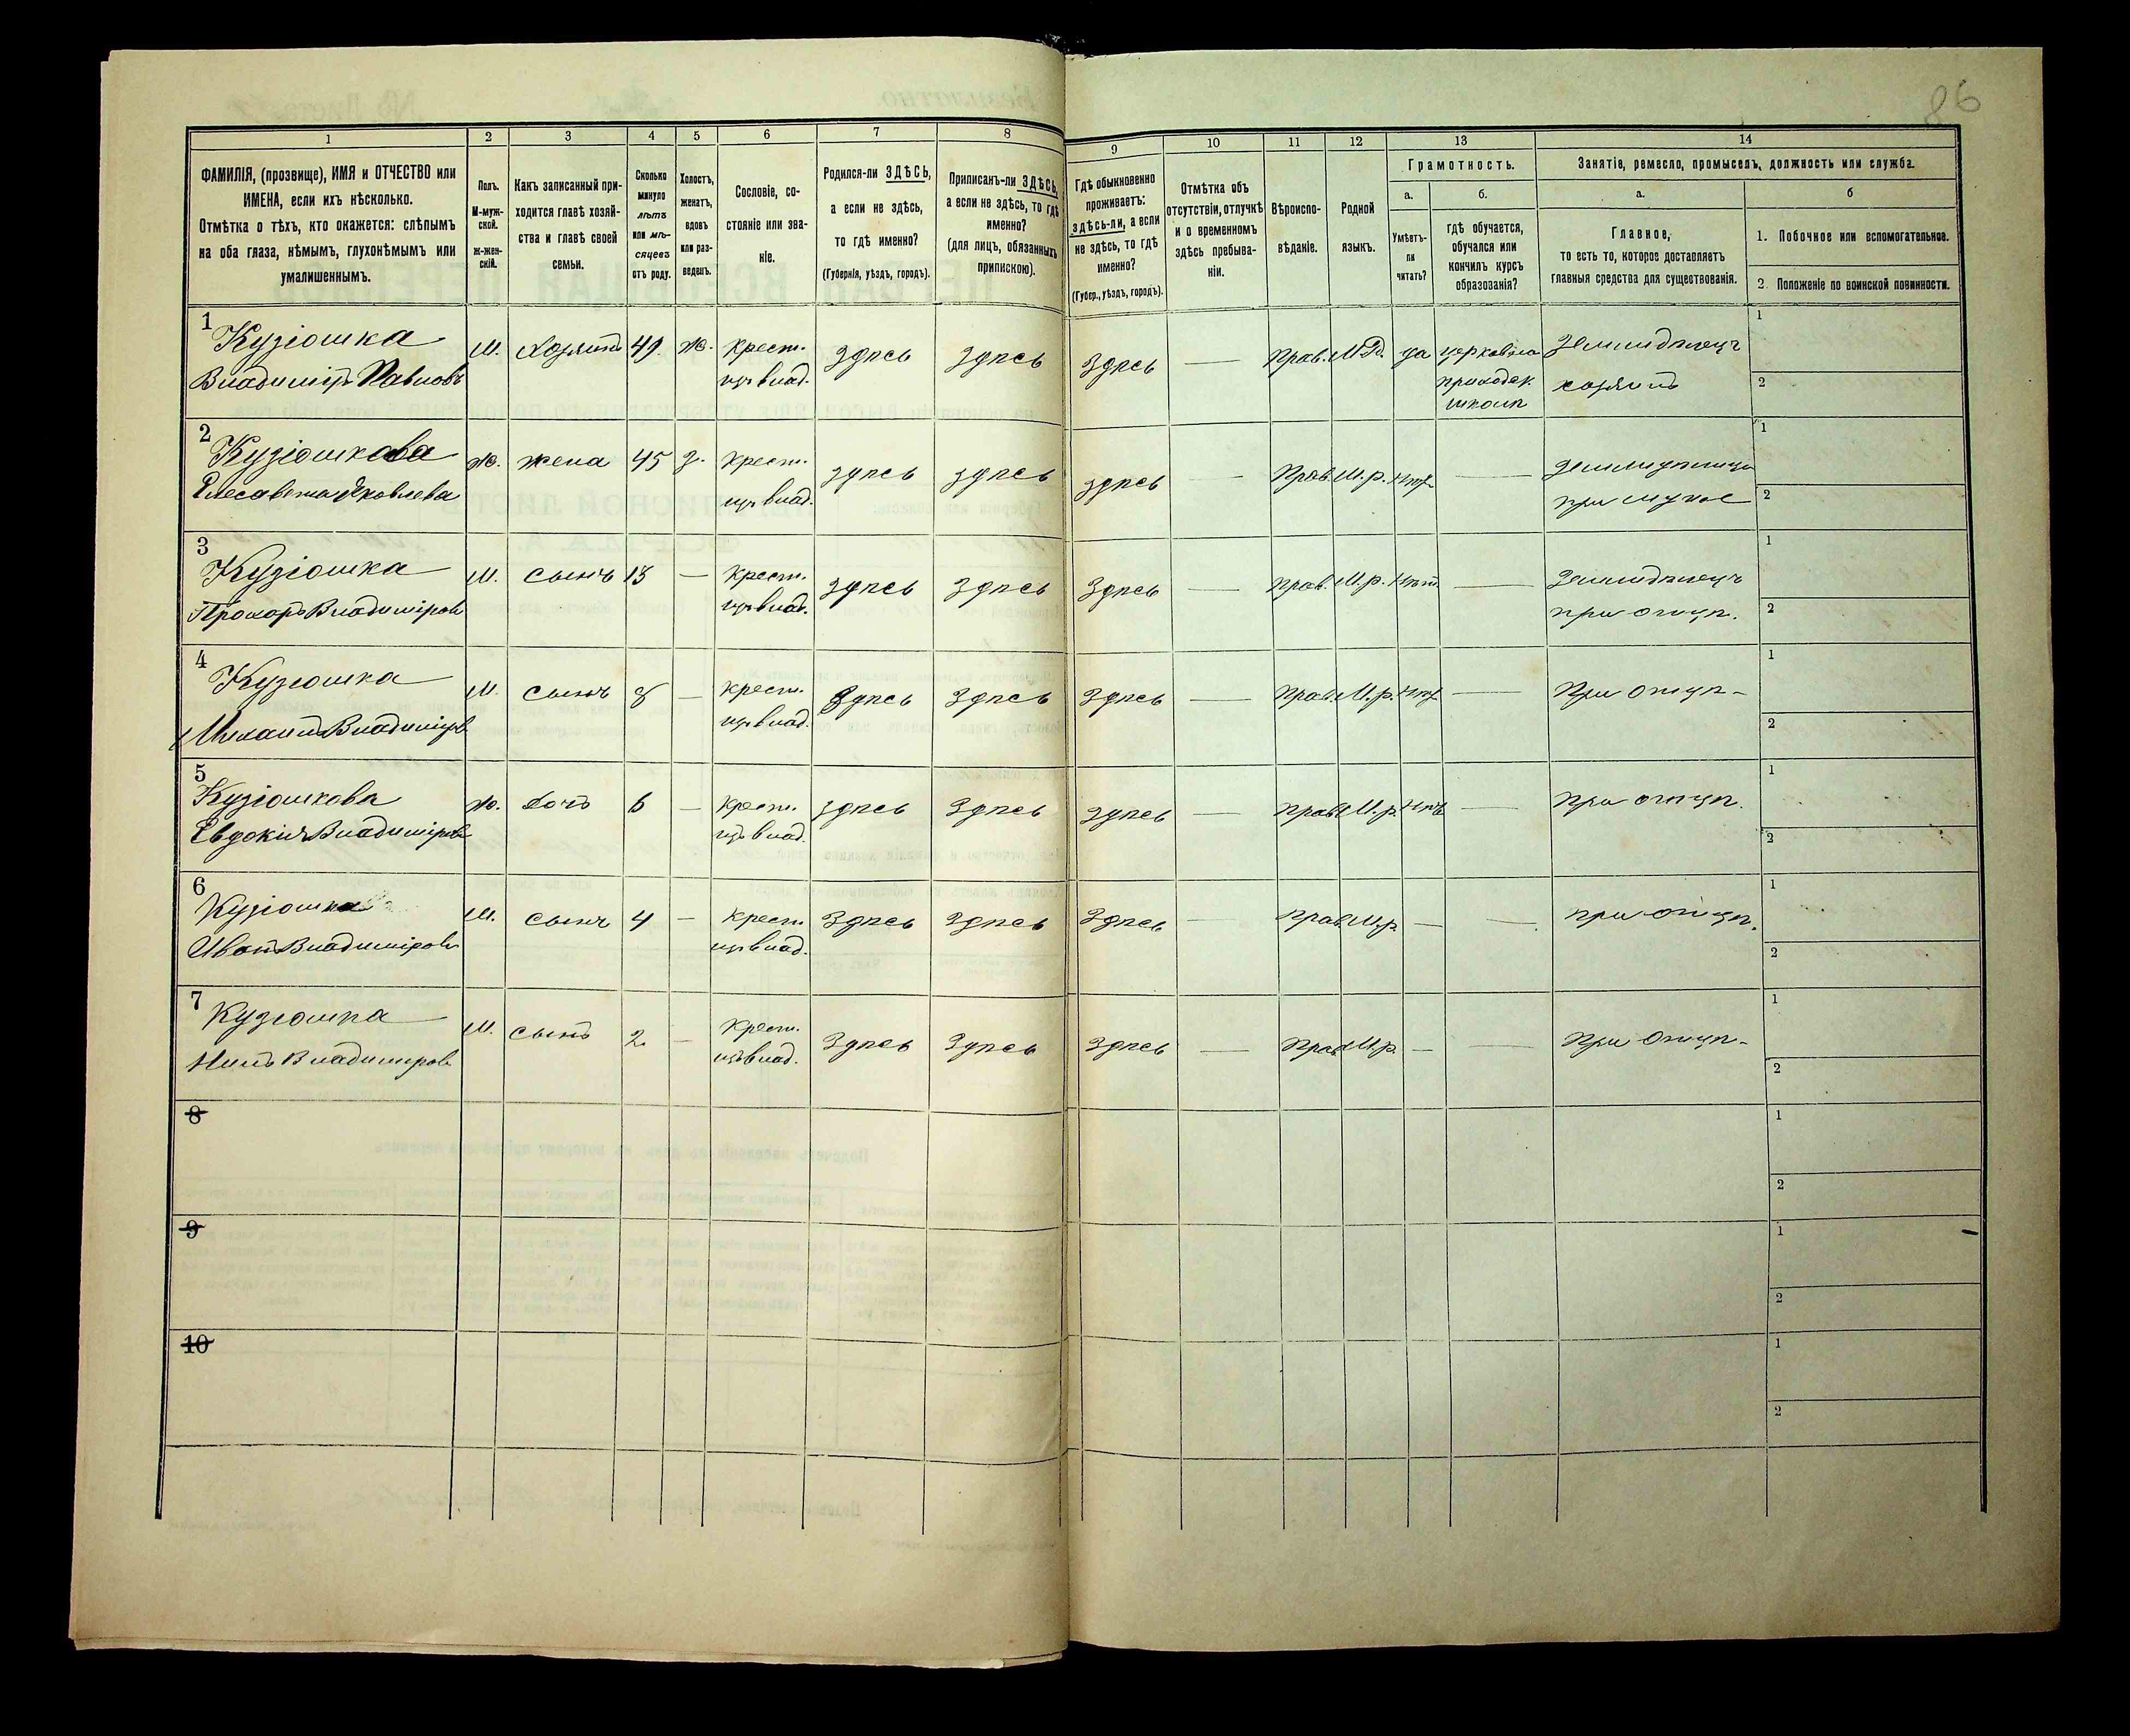 86
1
2
3
4
5
6
7
8
9
10
11
12
13
14
ФАМИЛІЯ, (прозвище), ИМЯ и ОТЧЕСТВО или
ИМЕНА, если ихъ нѣсколько.
Отмѣтка о тѣхъ, кто окажется: слѣпымъ
на оба глаза, нѣмымъ, глухонѣмымъ или
умалишеннымъ.
Полъ.
М-муж-
ской.
ж-жен-
скій.
Какъ записанный при-
ходится главѣ хозяй-
ства и главѣ своей
семьи.
Сколько
минуло
лѣтъ
или мѣ-
сяцевъ
отъ роду.
Холостъ,
женатъ,
вдовъ
или раз-
веденъ.
Сословіе, со-
стояніе или зва-
ніе.
Родился-ли ЗДѢСЬ,
а если не здѣсь,
то гдѣ именно?
(Губернія, уѣздъ, городъ).
Приписанъ-ли ЗДѢСЬ,
а если не здѣсь, то гдѣ
именно?
(для лицъ, обязанныхъ
припискою).
Гдѣ обыкновенно
проживаетъ:
здѣсь-ли, а если
не здѣсь, то гдѣ
именно?
(Губер., уѣздъ, городъ).
Отмѣтка объ
отсутствіи, отлучкѣ
и о временномъ
здѣсь пребыва-
ніи.
Вѣроиспо-
вѣданіе.
Родной
языкъ.
Грамотность.
а.
б.
Умѣетъ-
ли
читать?
гдѣ обучается,
обучался или
кончилъ курсъ
образованія?
Занятіе, ремесло, промыселъ, должность или служба.
а.
б
Главное,
то есть то, которое доставляетъ
главныя средства для существованія.
1. Побочное или вспомогательное.
2. Положеніе по воинской повинности.
1 Кузіошка
Владиміръ Павловъ
М. Хозяинъ 49. Ж. крест. здѣсь здѣсь здѣсь — Прав. М.Р. да церковно Земледѣлецъ 1
изъ влад. приходск. хозяинъ 2
школѣ
2 Кузіошкова
Елесавета Яковлева
Ж. жена 45 З. крест. здѣсь здѣсь здѣсь — Прав. М.р. нѣт — 1
изъ влад. при мужѣ 2
3 Кузіошка
Прохоръ Владиміровъ
М. сынъ 13 — крест. здѣсь здѣсь здѣсь — Прав. М.р. нѣт. — Земледѣлецъ 1
изъ влад. при отцѣ. 2
4 Кузюшка
Михаилъ Владиміров
М. сынъ 8 — крест. здѣсь здѣсь здѣсь — Прав. М.р. нѣт — При отцѣ- 1
изъ влад. 2
5 Кузіошкова
Евдокія Владимірова
Ж. дочь 6 — крест. здѣсь здѣсь здѣсь — прав М.р. нѣтъ — при отцѣ. 1
изъ влад. 2
6 Кузіошка
Иванъ Владиміровъ
М. сынъ 4 — крест здѣсь здѣсь здѣсь — прав. М.р. — — при отцѣ. 1
изъ влад. 2
7 Кузюшка
Нилъ Владимировъ
М. сынъ 2. — крест. здѣсь здѣсь здѣсь — Прав М.р. — — При отцѣ- 1
изъ влад. 2
8 1
2
9 1
2
10 1
2